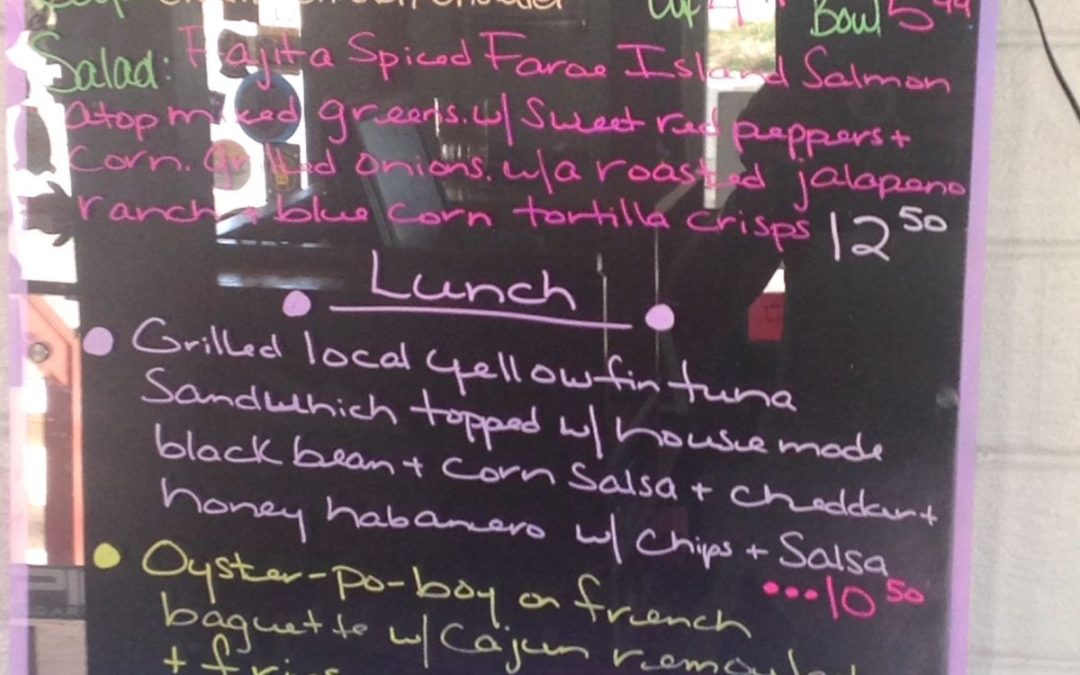 Bowl 5 99
Salad: Fajita Spiced Faroe Island Salmon
atop mixed greens. w/ Sweet red peppers +
Corn. Grilled onions. w/a roasted jalapeno
ranch + blue corn tortilla crisps 12 50
Lunch
Grilled local yellowfin tuna
Sandwhich topped w/ house made
black bean + corn Salsa + cheddar +
honey habanero w/ chips + Salsa
...10 50
Oyster-po-boy on french
baguette w/ Cajun
+ fries